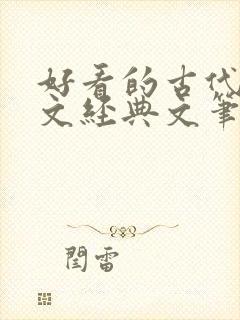 好看的古代
文经典文笔
闰雷